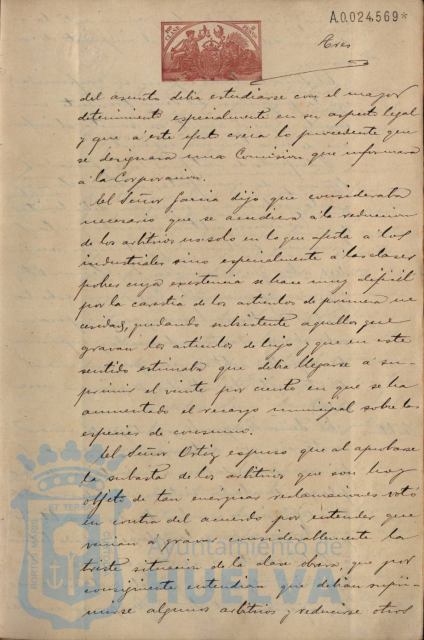 A.0.024.569*
Tres
del asunto debia estudiarse con el mayor
detenimiento especialmente en su aspecto legal
y que á este efecto creia lo procedente que
se designara una Comision que informara
á la Corporacion.
El Señor Garcia dijo que consideraba
necesario que se acudiera á la reduccion
de los arbitrios no solo en lo que afecta á los
industriales sino especialmente á las clases
pobres cuya existencia se hace muy dificil
por la carestia de los articulos de primera ne
cesidad, quedando subsistente aquellos que
gravan los articulos de lujo y que en este
sentido estimaba que debia llegarse á su-
primir el veinte por ciento en que se ha
aumentado el recargo municipal sobre las
especies de consumo.
El Señor Ortiz expuso que al aprobarse
la subasta de los arbitrios que son hoy
objeto de tan enérgicas reclamaciones votó
en contra del acuerdo por entender que
venian á gravar considerablemente la
triste situacion de la clase obrera, que por
consiguiente entendia que debian supri-
mirse algunos arbitrios y reducirse otros
Ayuntamiento de
HUELVA